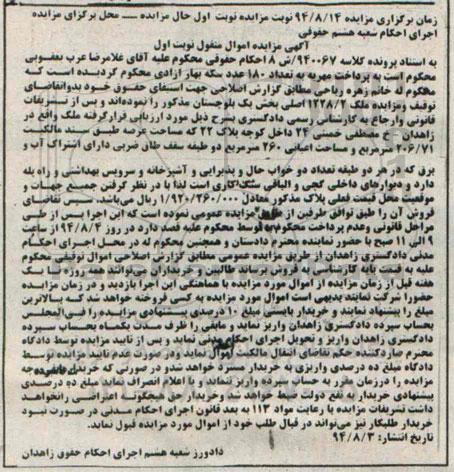 زمان برگزاری مزایده ۹۴/۸/۱۴ نوبت مزایده نوبت اول حال مزایده ــ محل برگزای مزایده
اجرای احکام شعبه هشتم حقوقی
آگهی مزایده اموال منقول نوبت اول
به استناد پرونده کلاسه ۹۴۰۰۶۷/ش ۸ احکام حقوقی محکوم علیه آقای غلامرضا عرب یعقوبی
محکوم است به پرداخت مهریه به تعداد ۱۸۰ عدد سکه بهار آزادی محکوم گردیده است که
محکوم له خانم زهره ریاحی مطابق گزارش اصلاحی جهت استیفای حقوق خود بدوا تقاضای
توقیف ومزایده ملک ۱۲۲۸/۲ اصلی بخش یک بلوچستان مذکور را نموده‌اند و پس از تشریفات
قانونی وارجاع به کارشناس رسمی دادگستری بشرح ذیل مورد ارزیابی قرارگرفته ملک واقع در
زاهدان - خ مصطفی خمینی ۲۴ داخل کوچه پلاک ۲۲ که مساحت عرصه طبق سند مالکیت
۲۰۶/۷۱ مترمربع و مساحت اعیانی ۲۶۰ مترمربع دو طبقه سقف طاق ضربی دارای اشتراک آب و
برق که در هر دو طبقه تعداد دو خواب حال و پذیرایی و آشپزخانه و سرویس بهداشتی و راه پله
دارد و دیوارهای داخلی گچی و الباقی سنگ کاری است لذا با در نظر گرفتن جمیع جهات و
موقعیت محل قیمت فعلی پلاک مذکور معادل ۱/۹۲۰/۲۶۰/۰۰۰ ریال می‌باشد. سپس تقاضای
فروش آن را طبق توافق طرفین از طریق مزایده عمومی نموده است که این اجرا پس از طی
مراحل قانونی وعدم پرداخت محکوم به توسط محکوم علیه قصد دارد در روز ۹۴/۸/۴ از ساعت
۹ الی ۱۱ صبح با حضور نماینده محترم دادستان و همچنین محکوم له در محل اجرای احکام
مدنی دادگستری زاهدان از طریق مزایده عمومی مطابق گزارش اصلاحی اموال توقیفی محکوم
علیه به قیمت پایه کارشناسی به فروش برساند طالبین وخریداران می‌توانند همه روزه تا یک
هفته قبل از زمان مزایده از اموال مورد مزایده با هماهنگی این اجرا بازدید و در زمان مزایده
حضورا شرکت نمایند بدیهی است اموال مورد مزایده به کسی فروخته خواهد شد که بالاترین
مبلغ را پیشنهاد نمایند و خریدار بایستی مبلغ ۱۰ درصدی پیشنهادی مزایده را فی‌المجلس
بحساب سپرده دادگستری زاهدان واریز نماید و مابقی را ظرف مدت یکماه بحساب سپرده
دادگستری زاهدان واریز و تحویل اجرای احکام مدنی نماید و پس از تایید مزایده توسط دادگاه
محترم صادرکننده حکم تقاضای انتقال مالکیت اموال نماید ودرصورت عدم تایید مزایده توسط
دادگاه مبلغ ده درصدی واریزی به خریدار مسترد خواهد شدو در صورتی که خریدار
مزایده را درزمان مقرر به حساب سپرده واریز ننماید و یا اعلام انصراف نماید مبلغ ده درصدی
پیشنهادی خریدار به نفع دولت ضبط خواهد شد وخریدار حق هیچگونه اعتراضی رانخواهد
داشت تشریفات مزایده با رعایت مواد ۱۱۳ به بعد قانون اجرای احکام مدنی در صورت نبود
خریدار طلبکار نیز می‌تواند در قبال طلب خود از اموال مورد مزایده قبول نماید.
تاریخ انتشار: ۹۴/۸/۳
دادورز شعبه هشتم اجرای احکام حقوق زاهدان